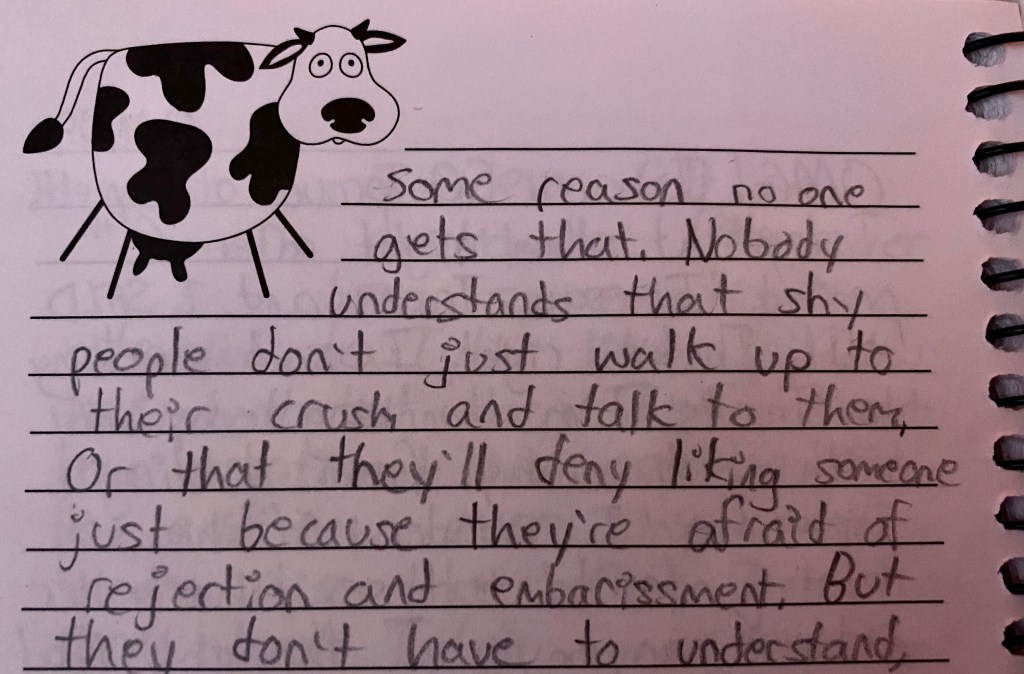 some reason no one
gets that. Nobody
understands that shy
people don't just walk up to
their crush and talk to them,
Or that they'll deny liking someone
just because they're afraid of
rejection and embarissment. But
they don't have to understand,